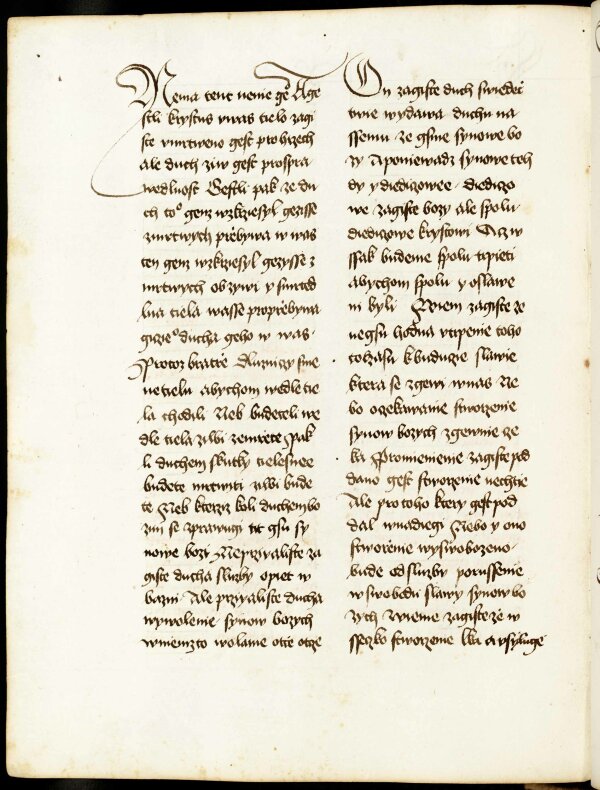 Nema tent nenie geᵒ A ge
stli krystus wwas tielo zagi
ste vmrtweno gest pro hrziech
ale duch ziw gest prospra
wedlnost Gestli pak ze du
ch toᵒ genz wzkrziesyl gezisse
zmrtwych przebywa w was
ten genz wzkrziesyl gezysse z
mrtwych obzywi y smrted
lna tiela wasse pro przebywa
gicieᵒ ducha geho w was
Protoz bratrzie dluzniczy sme
ne tielu abychom wedle tie
la chodili Neb budeteli we
dle tiela ziwi zemrzete Pak
li duchem skutky tielesnee
budete mrtwiti ziwi bude
te Neb kterziz koli duchem bo
zim se zprawugi tit gsu sy
nowe bozy Neprzyialiste za
giste ducha sluzby opiet w
bazni Ale przyialiste ducha
wywolenie synow bozych
wniemzto wolame otcze otcze
On zagiste duch swiedec
twie wydawa duchu na
ssemu ze gsme synowe bo
zy A poniewadz synowe teh
dy y diediczowee diediczo
we zagiste bozy ale spolu
diediczowe krystowi A cz w
ssak budeme spolu trpieti
abychom spolu y oslawe
ni byli Zwiem zagiste ze
negsu hodna vtrpenie toho
to czasu k buduczie slawie
ktera se zgewi w nas Ne
bo oczekawanie stworzenie
synow bozych zgewnie cze
ka Promienienie zagiste pod
dano gest stworzenie nechtie
Ale pro toho ktery gest pod
dal w nadiegi Nebo y ono
stworzenie wyswobozeno
bude od sluzby porussenie
w swobodu slawy synow bo
zych Wieme zagiste ze w
sseczko stworzenie lka